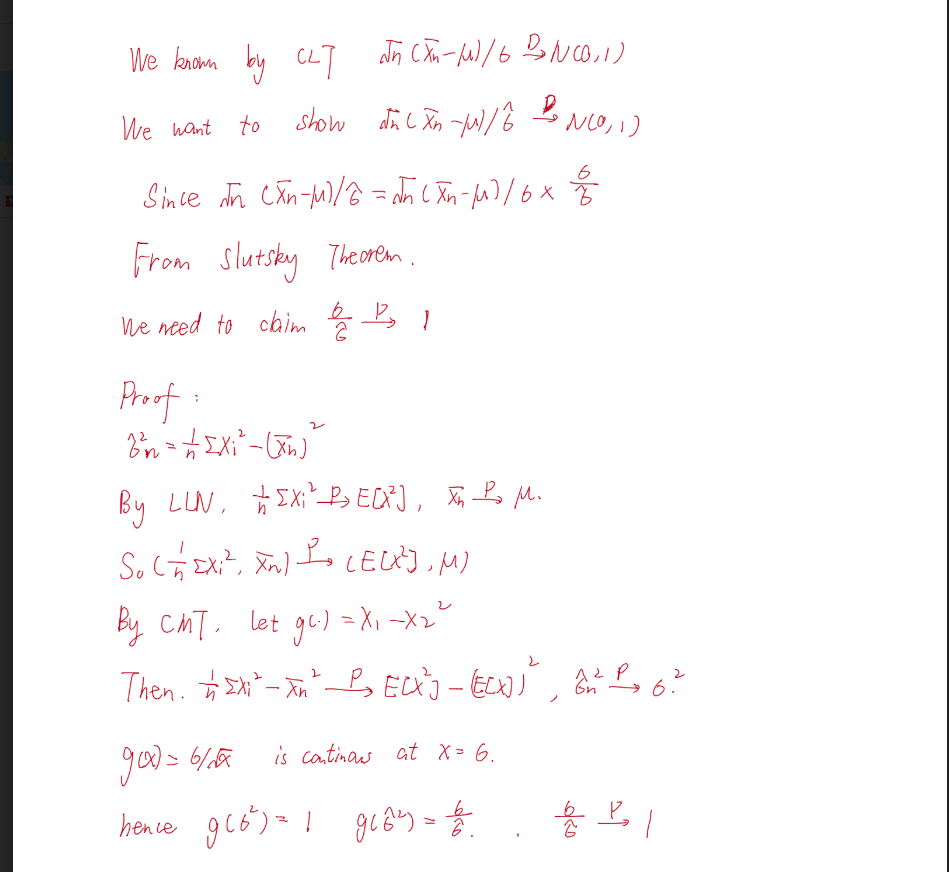 We known by CLT √n (X̄n-μ)/σ →D N(0,1)
We want to show √n (X̄n-μ)/σ̂ →D N(0,1)
Since √n (X̄n-μ)/σ̂ = √n (X̄n-μ)/σ × σ/σ̂
From Slutsky Theorem.
We need to claim σ/σ̂ →P 1
Proof :
σ̂²n = 1/n ΣXi² - (X̄n)²
By LLN, 1/n ΣXi² →P E[X²], X̄n →P μ.
So (1/n ΣXi², X̄n) →P (E[X²], μ)
By CMT, let g(·) = X1 - X2²
Then. 1/n ΣXi² - X̄n² →P E[X²] - (E[X])², σ̂n² →P σ².
g(x) = σ/√x is continuous at x = σ.
hence g(σ²) = 1 g(σ̂²) = σ/σ̂. . σ/σ̂ →P 1